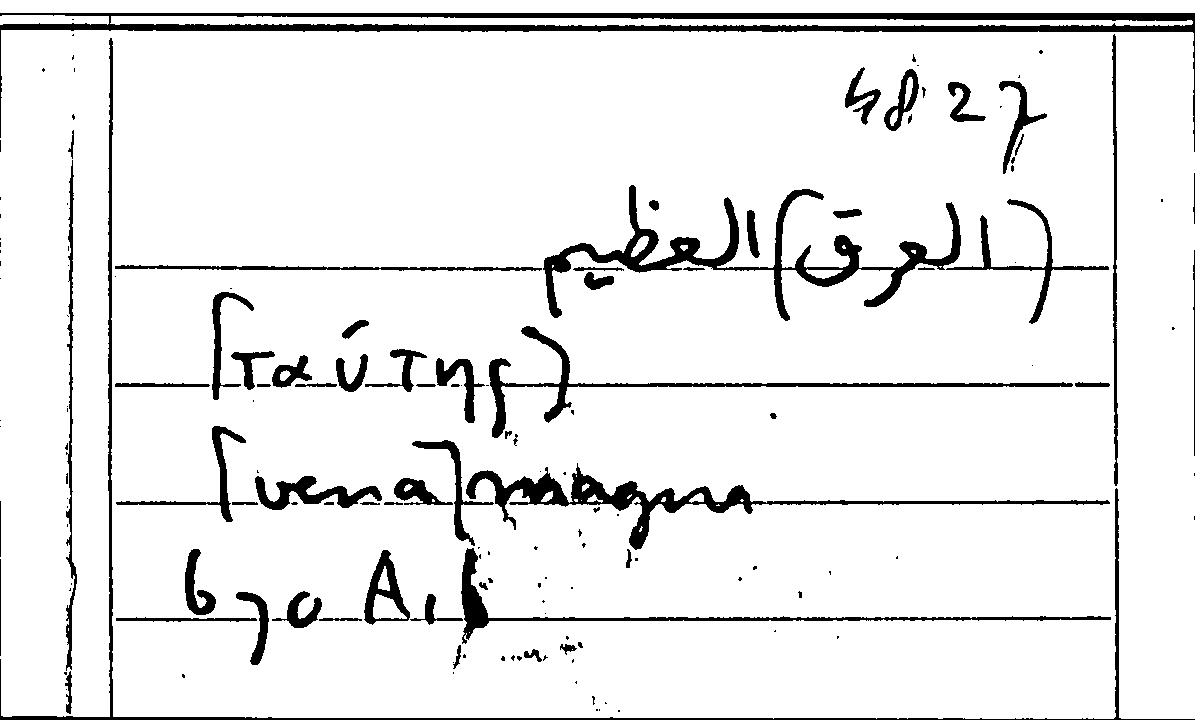 4827
(العرق) العظيم
[ταύτης]
[vena] magna
670 A, b